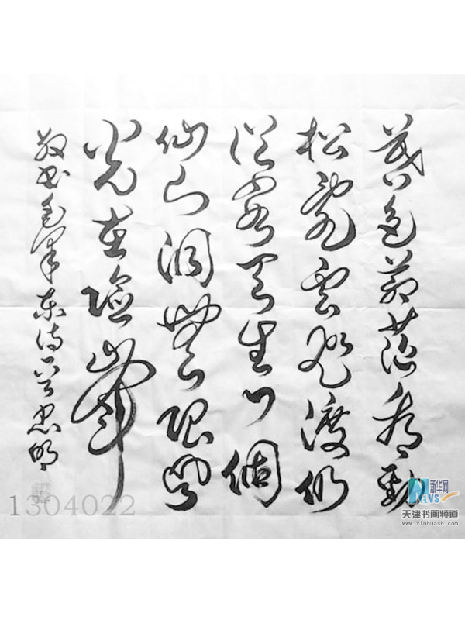 暮色苍茫看劲
松乱云飞渡仍
從容天生一個
仙人洞無限风
光在险峰
书毛泽东诗
1304022
新华网
NEWS
天津书画频道